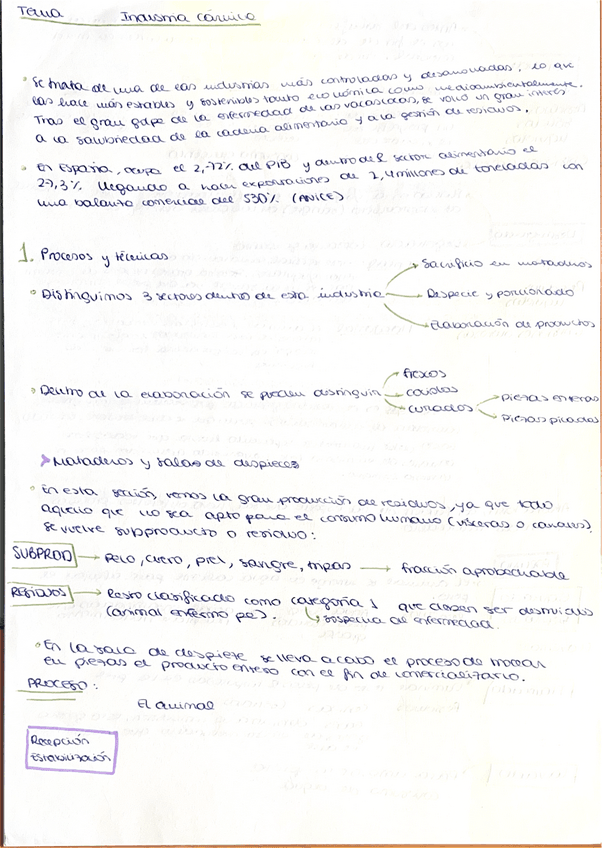 Tema Industria Cárnica
• Se trata de una de las industrias más controladas y desarrolladas, lo que
las hace más estables y sostenibles tanto económica como medioambientalmente.
Tras el gran golpe de la enfermedad de las vacas locas, se volcó un gran interés
a la salubridad de la cadena alimentaria y a la gestión de residuos.
• En España, ocupa el 2,72% del PIB y dentro del sector alimentario el
27,3% llegando a hacer exportaciones de 2,4 millones de toneladas con
una balanza comercial del 530% (ANICE)
1. Procesos y técnicas
• Distinguimos 3 sectores dentro de esta industria
Sacrificio en mataderos
Despiece y porcionado
Elaboración de productos
• Dentro de la elaboración se pueden distinguir
frescos
cocidos
curados
Piezas enteras
Piezas picadas
> Mataderos y salas de despieces
• En esta sección, vemos la gran producción de residuos, ya que todo
aquello que no sea apto para el consumo humano (vísceras o canales)
se vuelve subproducto o residuo:
SUBPROD → Pelo, cuero, piel, sangre, tripas → fracción aprobechable
RESIDUOS → Resto clasificado como categoría 1 que deben ser destruidos
(animal enfermo pe). ↳ sospecha de enfermedad.
• En la sala de despieze se lleva a cabo el proceso de trocear
en piezas el producto entero con el fin de comercializarlo.
PROCESO:
El animal
Recepción
Estabulización